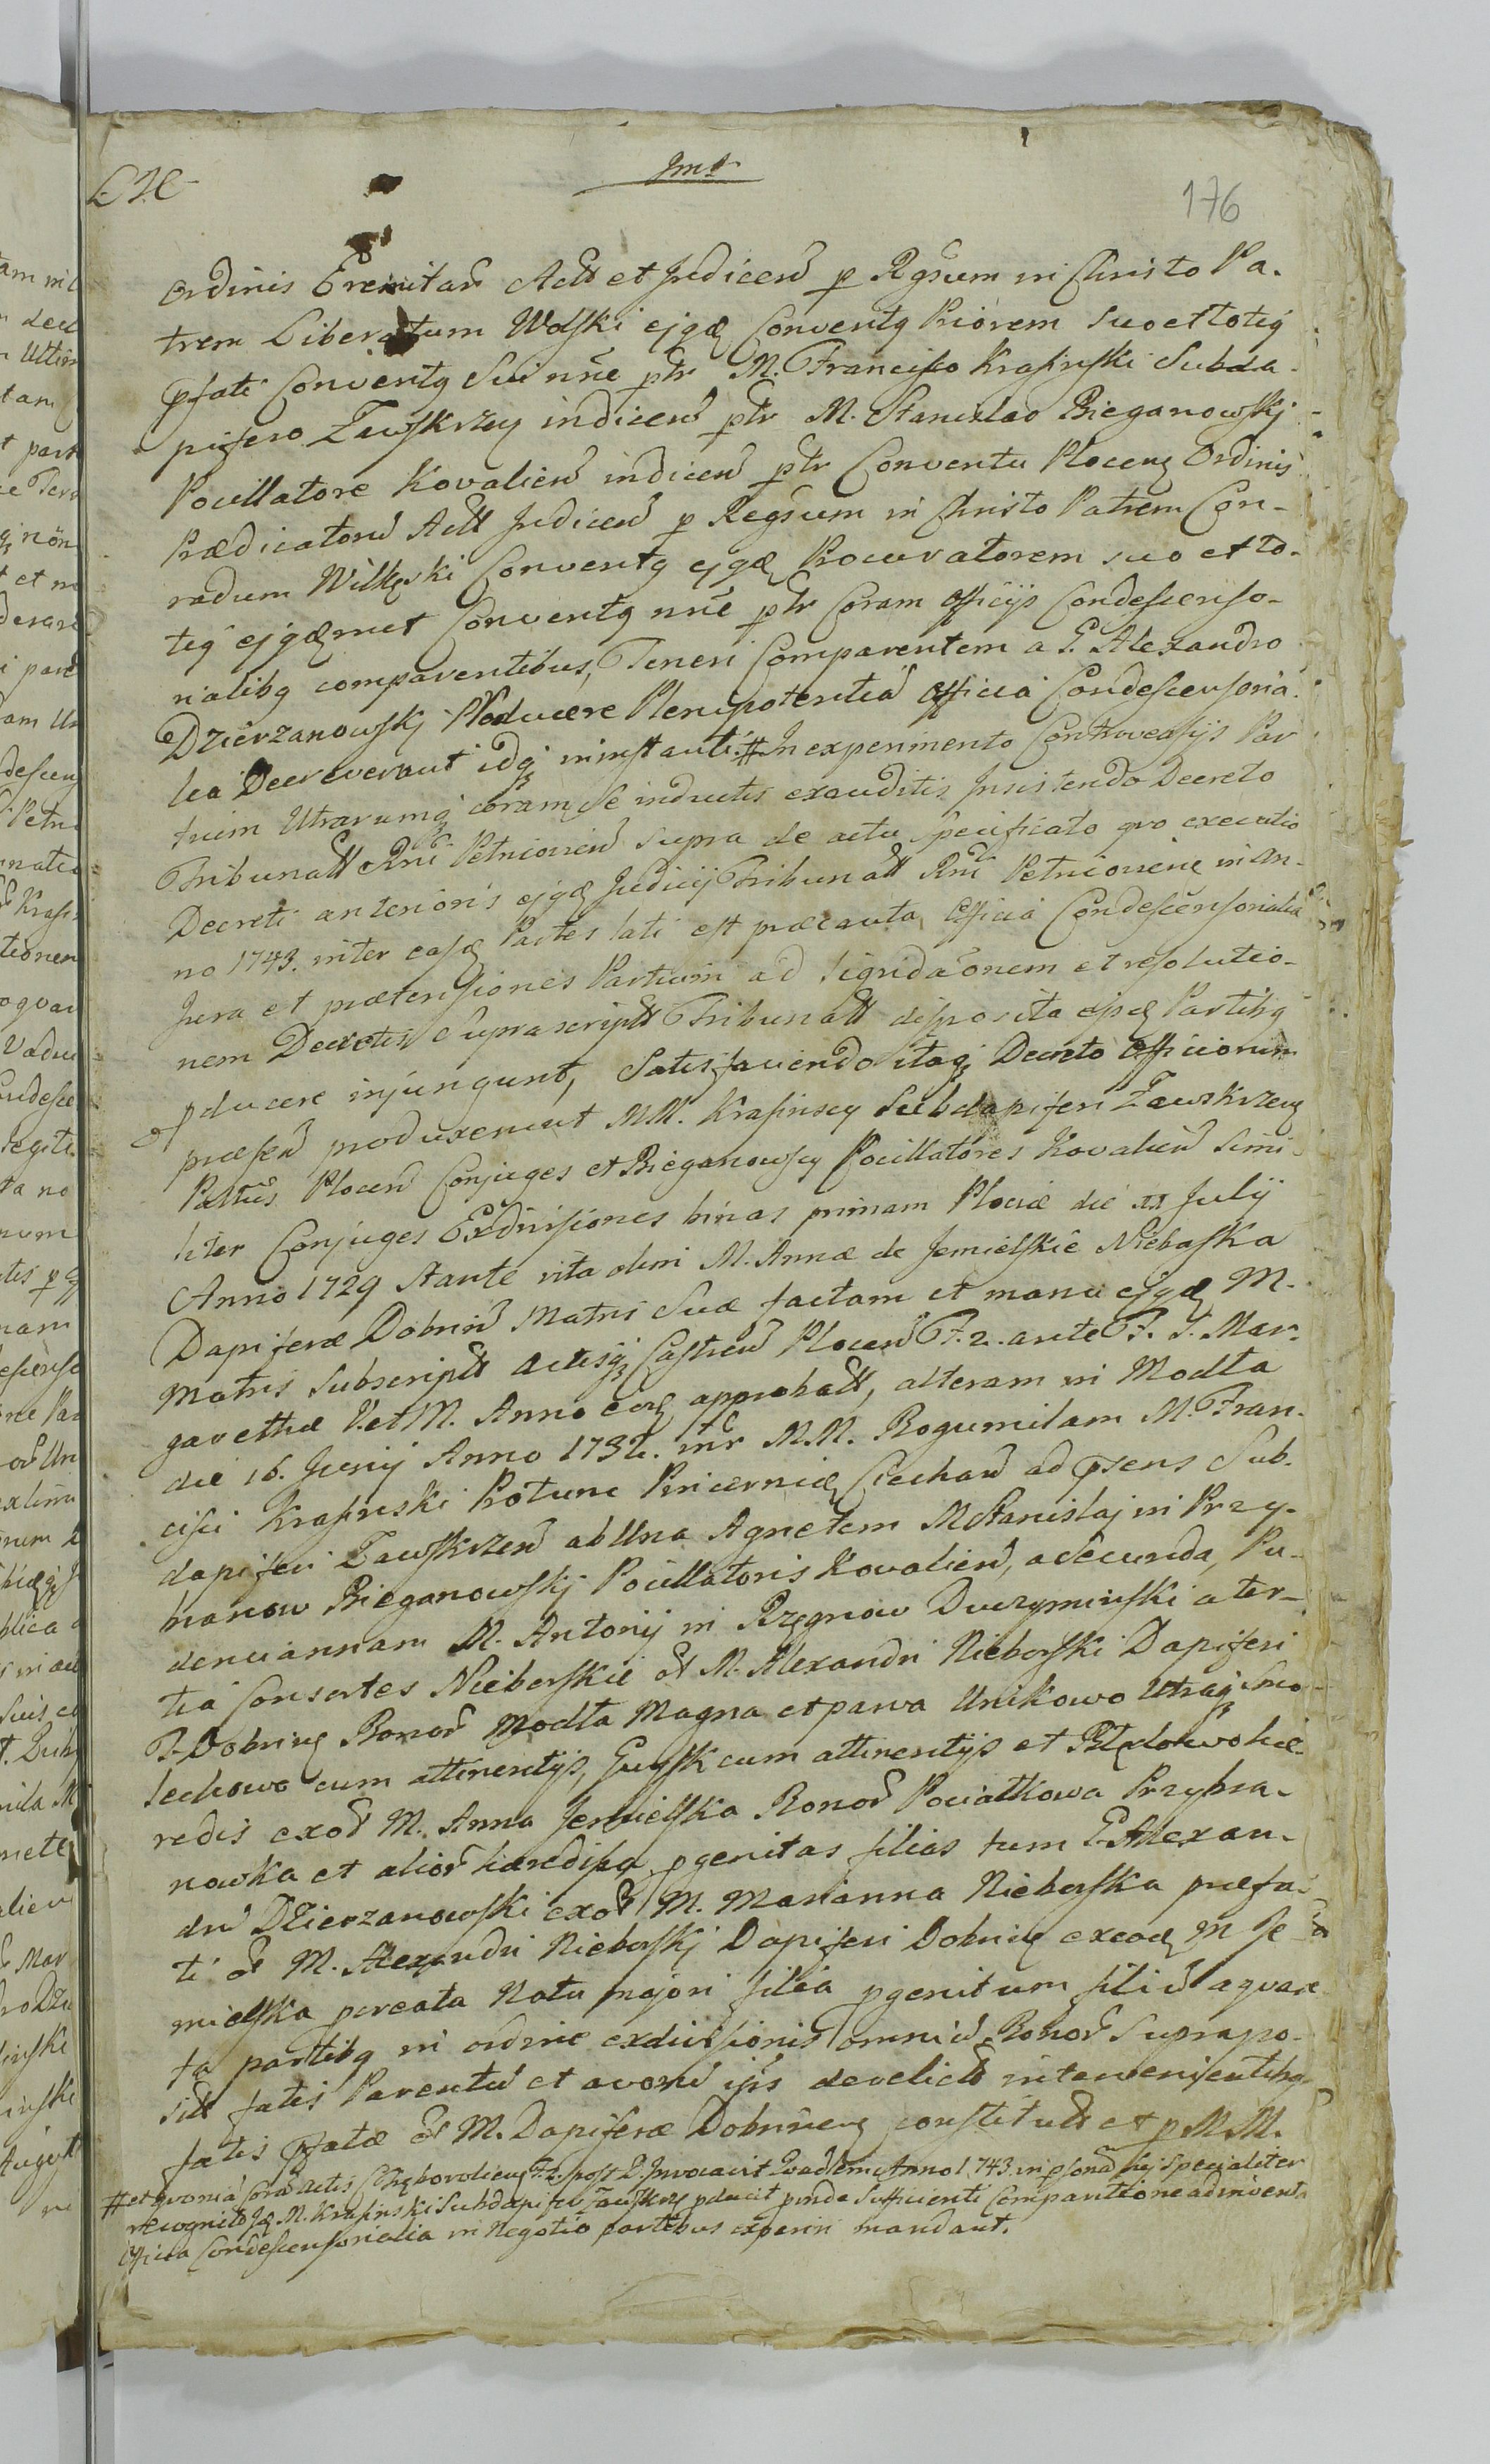 Jmt
176
Ordinis Eremitarũ Actt et Judicenũ p Rgsum in Christo Pa-
trem Liberatum Wolski ejqđ Conventq Priorem suo et totiq
pfati Conventq Sui nñe ptr M. Francisco Krasinski Subda-
pifero Zawskrzeń indicenũ ptr M. Stanislao Bieganowskj
Pocillatore Kovalienũ indicenũ ptr Conventu Plocenę Ordinis
Prædicatorũ Actt Judicenũ p Regsum in Christo Patrem Con-
radum Wilkęski Conventq ejqđ Procuratorem suo et to-
tiq ejqđmet Conventq nñe ptr Coram Officijs Condescenso-
rialibq comparentibus, Teneri Comparentem a G. Alexandro
Dzierzanowskj Producere Plenipotentiã Officia Condescensoria-
lia Decreverunt idq in instanti. # In experimento Controversijs Par
tium Utrarumq coram se inductis exauditis Insistendo Decreto
Tribunatt Rni Petricovienũ supra de actu specificato qvo executio
Decreti anterioris ejqđ Judicij Tribunatt Rni Petricoviene in An-
no 1743. inter easđ Partes lati est præcauta Officia Condescensorialia
Jura et prætensiones Partium ad liqvidaõnem et resolutio-
nem Decretis suprascriptt Tribunatt disposita ejsđ Partibq
pducere injungunt, Satisfaciendo itaq Decreto Officiorum
præsenũ produxerunt MM. Krasinscy Subdapiferi Zawskrzenę
Pattũs Plocenũ Conjuges et Bieganowscy Pocillatores Kovalienũ simi
liter Conjuges Exdivisiones binas primam Plociæ die July
Anno 1729 Stante vita olim M. Annæ de Jemielskie Nieborska
Dapiferæ Dobrinũ Matris Suæ factam et manu ejqđ M.
Matris Subscriptt Actisq Castrenũ Plocenũ F. 2. ante F. S. Mar-
garethæ V. et M. Anno eođ approbatt, alteram in Modła
die 16. Junij Anno 1732. intr M.M. Bogumilam M. Fran-
cisci Krasinski Protunc Pincernię Ciechanũ ad psens Sub-
dapiferi Zawskrzenũ ab Una Agnetem M Stanislaj in Przy-
branow Bieganowskj Pocillatoris Kovalienũ, a Secunda, Pu-
dencianam M. Antonij in Rzęgnow Duczyminski a ter-
tia Consortes Nieborskie M. Alexandri Nieborski Dapiferi
T. Dobrinę Bonorũ Modła Magna et parva Unikowo Utraq Smo-
lechowo cum attinentijs, Guysk cum attinentijs et hæ-
redis exođ M. Anna Jemielska Bonorũ Pociałkowa Przybra-
nowka et aliorũ hæredibq pgenitas filias tum G. Alexan-
drũ Dzierzanowski exođ M. Marianna Nieborska præfa-
ti M. Alexandri Nieborskj Dapiferi Dobrinę exeađ M Je-
mielska pcreata Natu majori filia pgenitum filiũ a qvar
ta partibq in ordine exdivisionis omniũ Bonorũ Suprapo-
sitt fatis Parentũ et avorũ ipis derelictt intervenientibq
fatis pfatæ M. Dapiferæ Dobrinenę constitutt et p M.M.
# et qvoniã Corã actis F. 2. post D. Invocavit Anno 1743. in psonã suj Specialiter
recognito M. Krasinski Subdapifer Zawskrzę pducit proinde Sufficienti Comparitione adinventa
Officia Condescensorialia in Negotio partibus experiri mandant.